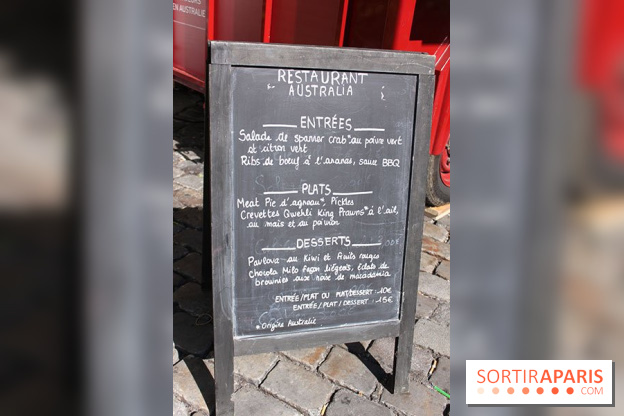 EN AUSTRALIE
RESTAURANT
AUSTRALIA
ENTRÉES
Salade de spanner crab* au poivre vert
et citron vert
Ribs de bœuf à l'ananas, sauce BBQ
PLATS
Meat Pie d'agneau*, Pickles
Crevettes Qwehli King Prawns* à l'ail,
au maïs et au poivron
DESSERTS
Pavlova au Kiwi et fruits rouges
chocola Milo façon liégeois, éclats de
brownies aux noix de macadamia
ENTRÉE/PLAT OU PLAT/DESSERT : 10€
ENTRÉE/PLAT/DESSERT : 15€
*Origine Australie
SORTIRAPARIS
.COM